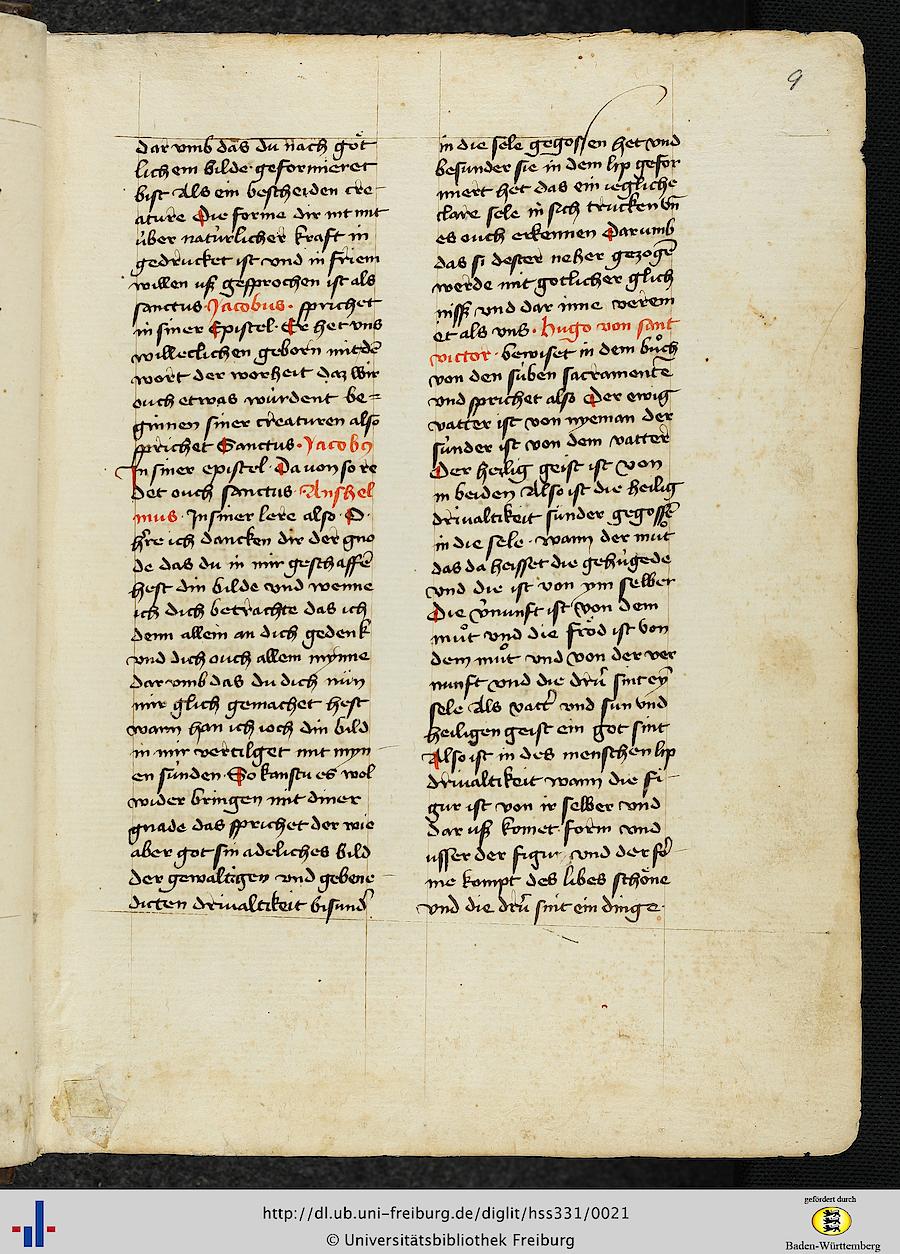 9
dar vmb das du nach göt
lichem bilde geformieret
bist Als ein bescheiden cre-
ature Die forme dir int mit
über natúrlicher kraft in
gedrucket ist vnd in friem
willen uß gesprochen ist als
sanctus · Jacobus · sprichet
in siner Epistel · Er het vns
willeclichen geborn mit dē
wort der worheit daz wir
ouch etwas wúrdent be=
ginnen siner creaturen also
sprichet Sanctus · Jacobꝰ
In siner epistel · Da von so re
det ouch sanctus · Anshel
mus · In siner lere also · O ·
h're ich dancken dir der gno
de das du in mir geschaffē
hest din bilde vnd wenne
ich dich betrachte das ich
denn allein an dich gedenk
vnd dich ouch allein mynne
dar vmb das du dich nun
mir glich gemachet hest
wann han ich ioch din bild
in mir vertilget mit myn-
en súnden · So kanstu es wol
wider bringen mit diner
gnade das sprichet der wie
aber got sin adeliches bild
der gewaltigen vnd gebene-
dicten drivaltikeit bisund'
in die sele gegossen het vnd
besunder sie in dem lip gefor
miert het das ein iegliche
clare sele in sich trucken vn̄
es ouch erkennen Darumb
das si dester neher gezogē
werde mit gotlicher glich
niss vnd dar inne verein
et als vns · Hugo von sant
victor · bewiset in dem bůch
von den súben sacramentē
vnd sprichet also Der ewig
vatter ist von nyeman der
súnder ist von dem vatter
Der heilig geist ist von
in beiden Also ist die heilig
drivaltikeit súnder gegossē
in die sele · wann der můt
das da heisset die gehúgede
vnd die ist von ym selber
Die v'nunft ist von dem
můt vnd die fröd ist von
dem můt vnd von der ver
nunft vnd die drú sint ey
sele Als vatt' vnd sun vnd
heiligen geist ein got sint
Also ist in des menschen lip
drivaltikeit wann die fi-
gur ist von ir selber vnd
dar uß komet form vnd
usser der figur vnd der fo'
me kompt des libes schöne
vnd die drú sint ein dinge ·
http://dl.ub.uni-freiburg.de/diglit/hss331/0021
© Universitätsbibliothek Freiburg
gefördert durch
Baden-Württemberg